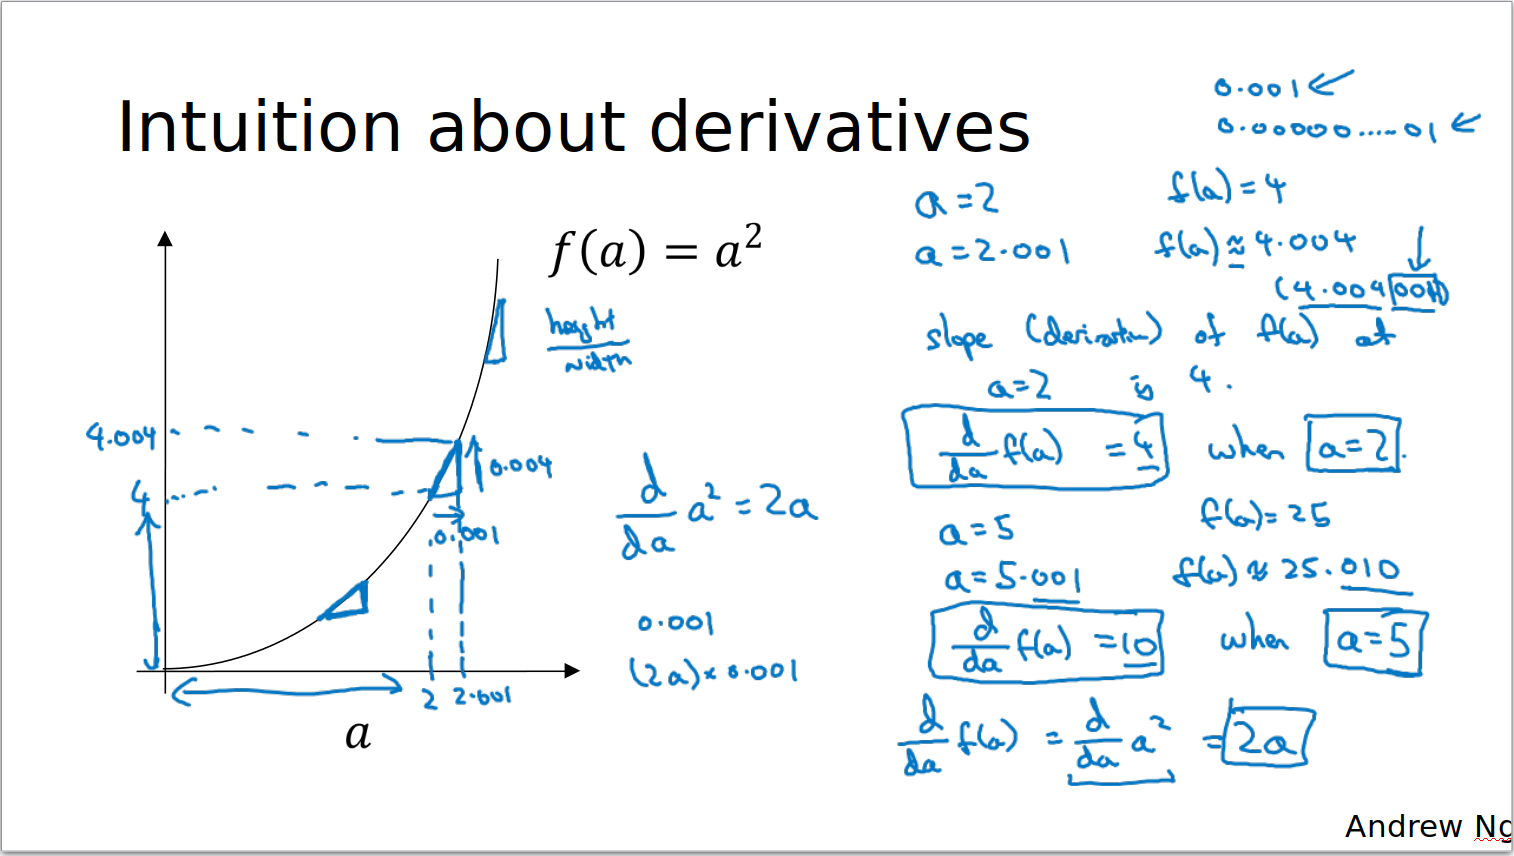 Intuition about derivatives
0.001
0.00000.....01
f(a) = a²
height
width
4.004
4
0.004
0.001
2 2.001
a
d/da a² = 2a
0.001
(2a) x 0.001
a = 2 f(a) = 4
a = 2.001 f(a) ≈ 4.004
(4.004001)
slope (derivative) of f(a) at
a=2 is 4.
d/da f(a) = 4 when a=2.
a = 5 f(a) = 25
a = 5.001 f(a) ≈ 25.010
d/da f(a) = 10 when a=5
d/da f(a) = d/da a² = 2a
Andrew Ng